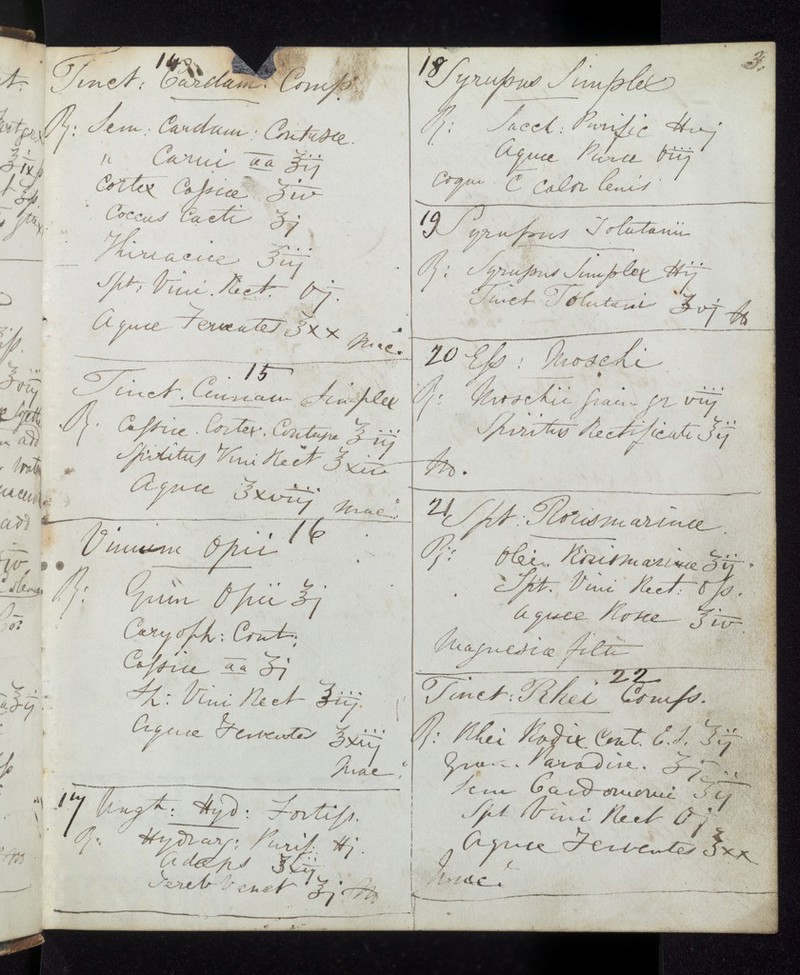 3.
14
Tinct: Cardam: Comp.
℞: Sem: Cardam: Contusæ.
" Carui āā ʒij
Cortex Cassiæ ʒiv
Coccus Cacti ʒj
Thiriacæ ℥iij
Spt. Vini. Rect. Oj.
Aquæ Ferventes ℥xx Mac.
15
Tinct. Cinnam Simplex
℞. Cassiæ. Cortex. Contusæ ℥iij
Spiritus Vini Rect ℥xiv
Aquæ ℥xviij Mac.
16
Vinum Opii
℞: Gum Opii ℥j
Caryoph: Cont:
Cassiæ āā ʒj
Sp: Vini Rect ℥iij.
Aquæ Ferventes ℥xiij
Mac.
17 Ungt: Hyd: Fortiss.
℞. Hydrarg: Purif: ℔j.
Adeps ℥xij
Tereb Venet ℥j M
18 Syrupus Simplex
℞: Sacch: Purific
Aquæ Puræ Oiij
Coque C Calor lenis
19 Syrupus Tolutanii
℞: Syrupus Simplex ℔ij
Tinct Tolutani ʒvj M
20 Ess: Moschi
℞: Moschii grain gr viij
Spiritus Rectificati ℥ij
M.
21 Spt: Rosismarinæ.
℞: Olei Rosismarinæ ʒij.
Spt. Vini Rect: Oss.
Aquæ Rosæ ℥iv.
Magnesiæ filte
22
Tinct: Rhei Comps.
℞: Rhei Radix Cont. E.I. ℥ij
Gran. Paradise.
Sem Cardomomi ʒij
Spt Vini Rect Oj
Aquæ Ferventes ℥xx
Mac.